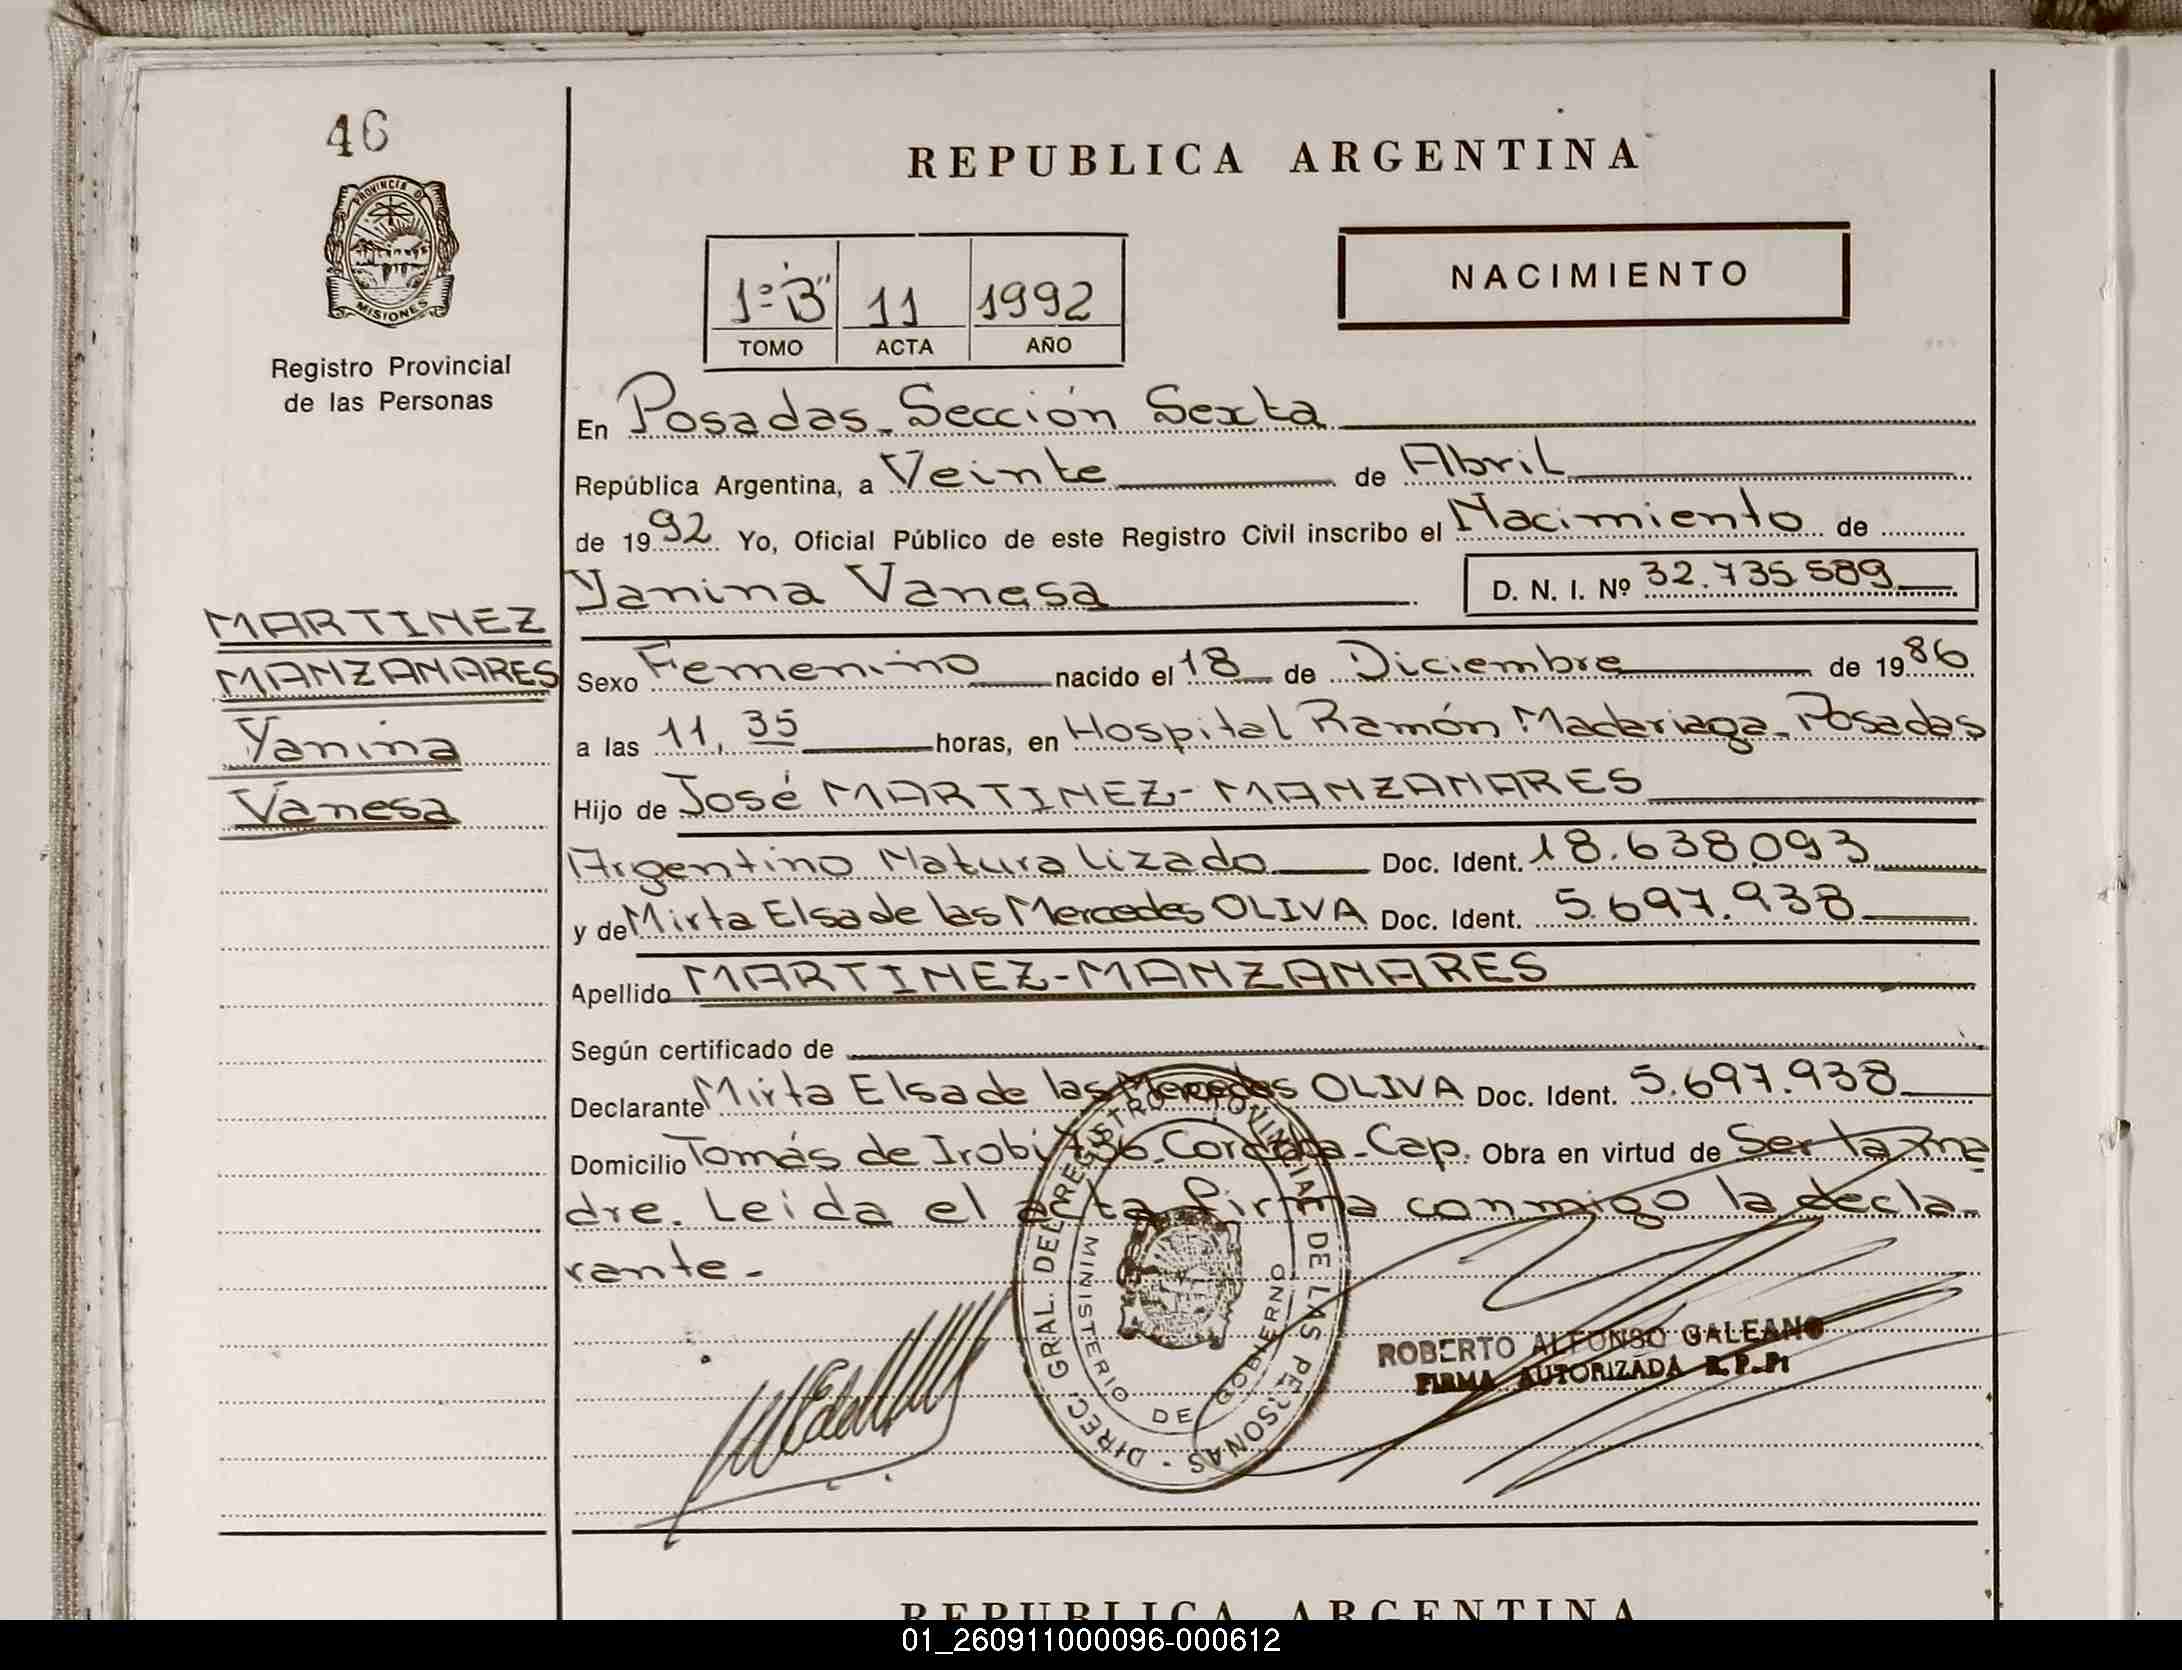 46
PROVINCIA DE
MISIONES
Registro Provincial
de las Personas
REPUBLICA ARGENTINA
1º "B" 11 1992
TOMO ACTA AÑO
NACIMIENTO
En Posadas - Sección Sexta
República Argentina, a Veinte de Abril
de 1992 Yo, Oficial Público de este Registro Civil inscribo el Nacimiento de
Yanina Vanesa D. N. I. Nº 32.735.589
MARTINEZ
MANZANARES
Yanina
Vanesa
Sexo Femenino nacido el 18 de Diciembre de 1986
a las 11,35 horas, en Hospital Ramón Madariaga - Posadas
Hijo de José MARTINEZ - MANZANARES
Argentino Naturalizado Doc. Ident. 18.638.093
y de Mirta Elsa de las Mercedes OLIVA Doc. Ident. 5.697.938
Apellido MARTINEZ - MANZANARES
Según certificado de
Declarante Mirta Elsa de las Mercedes OLIVA Doc. Ident. 5.697.938
Domicilio Tomás de Irobi 736 - Cordoba - Cap. Obra en virtud de Ser la ma
dre. Leida el acta firma conmigo la decla-
rante -
DIREC. GRAL. DEL REGISTRO PROVINCIAL DE LAS PERSONAS -
MINISTERIO DE GOBIERNO
ROBERTO ALFONSO GALEANO
FIRMA AUTORIZADA R.P.P.
REPUBLICA ARGENTINA
01_260911000096-000612